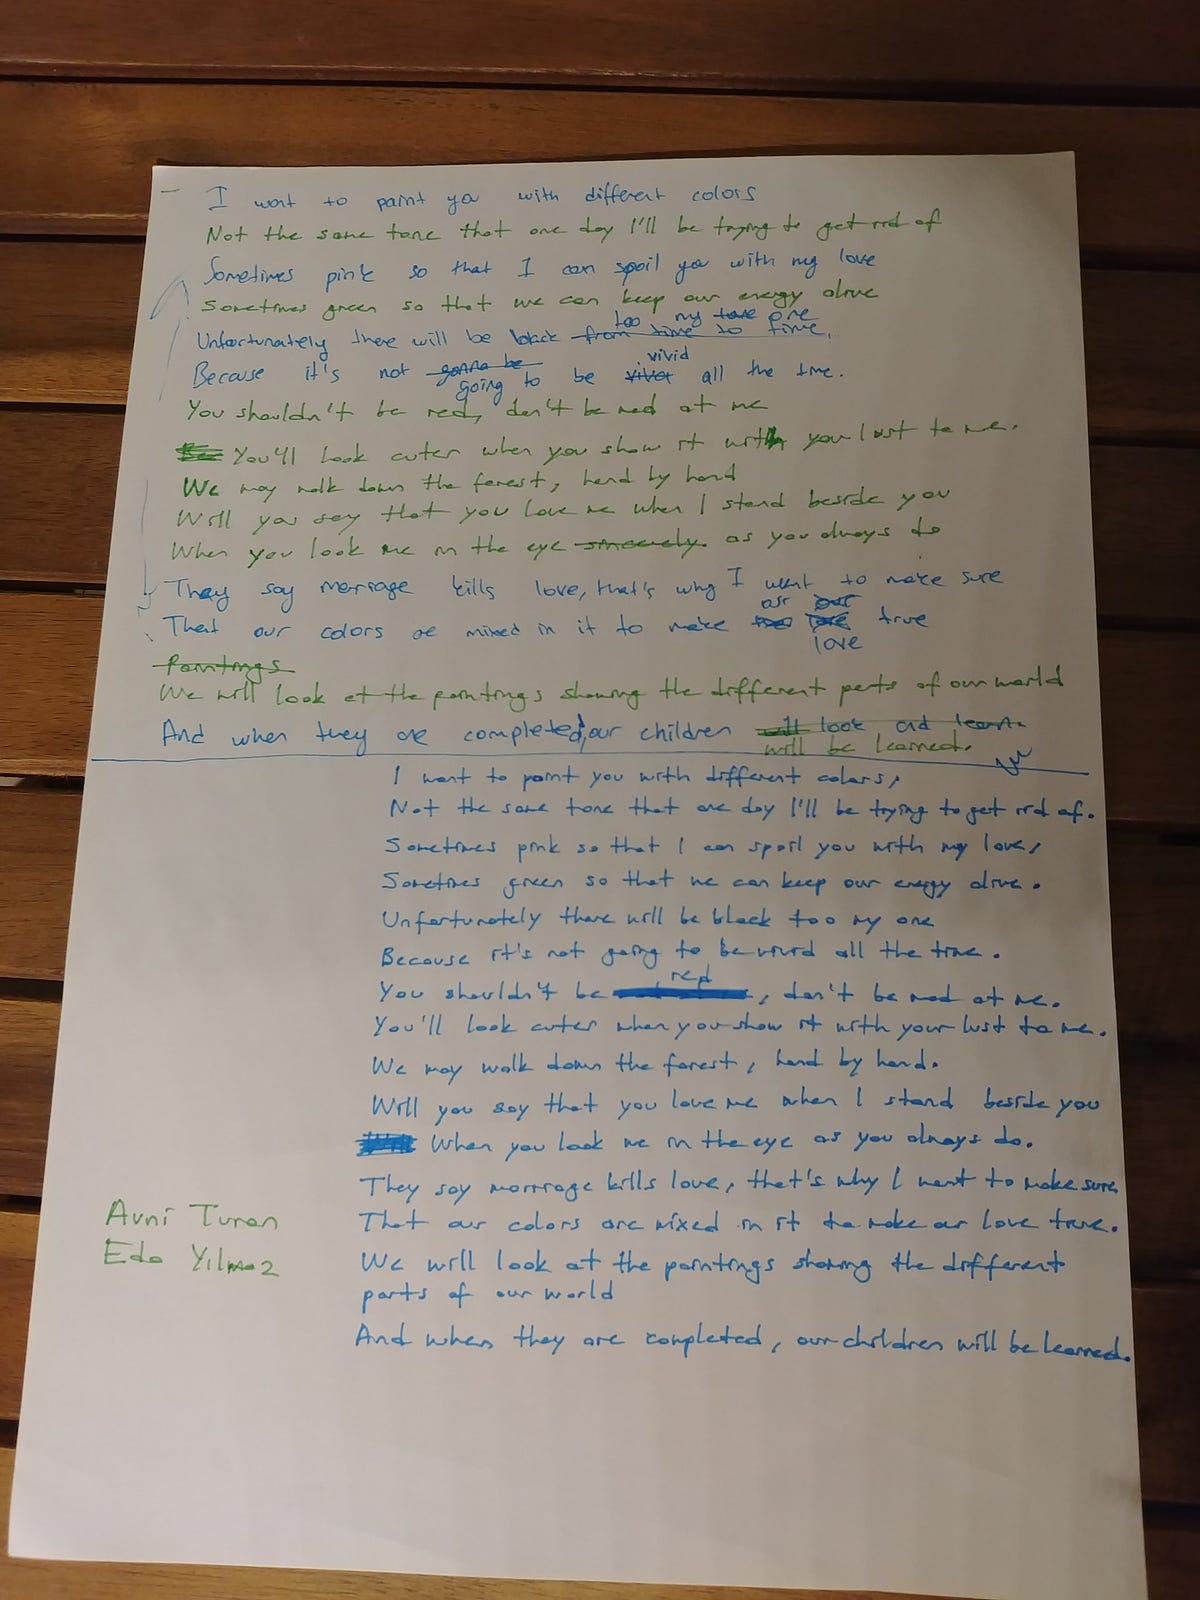 I want to paint you with different colors
Not the same tone that one day I'll be trying to get rid of
Sometimes pink so that I can spoil you with my love
Sometimes green so that we can keep our energy alive
too my tone one
Unfortunately there will be black from time to time.
vivid
Because it's not gonna be to be all the time.
going
You shouldn't be red, don't be mad at me
You'll look cuter when you show it with you lust to me.
We may walk down the forest, hand by hand
Will you say that you love me when I stand beside you
When you look me in the eye sincerely as you always do
They say marriage kills love, that's why I want to make sure
our our
That our colors are mixed in it to make love true
love
Paintings
We will look at the paintings showing the different parts of our world
And when they are completed, our children will look and learn
will be learned.
I want to paint you with different colors,
Not the same tone that one day I'll be trying to get rid of.
Sometimes pink so that I can spoil you with my love,
Sometimes green so that we can keep our energy alive.
Unfortunately there will be black too my one
Because it's not going to be vivid all the time.
red
You shouldn't be , don't be mad at me.
You'll look cuter when you show it with your lust to me.
We may walk down the forest, hand by hand.
Will you say that you love me when I stand beside you
When you look me in the eye as you always do.
They say marriage kills love, that's why I want to make sure
Avni Turan
That our colors are mixed in it to make our love true.
Eda Yılmaz
We will look at the paintings showing the different
parts of our world
And when they are completed, our children will be learned.